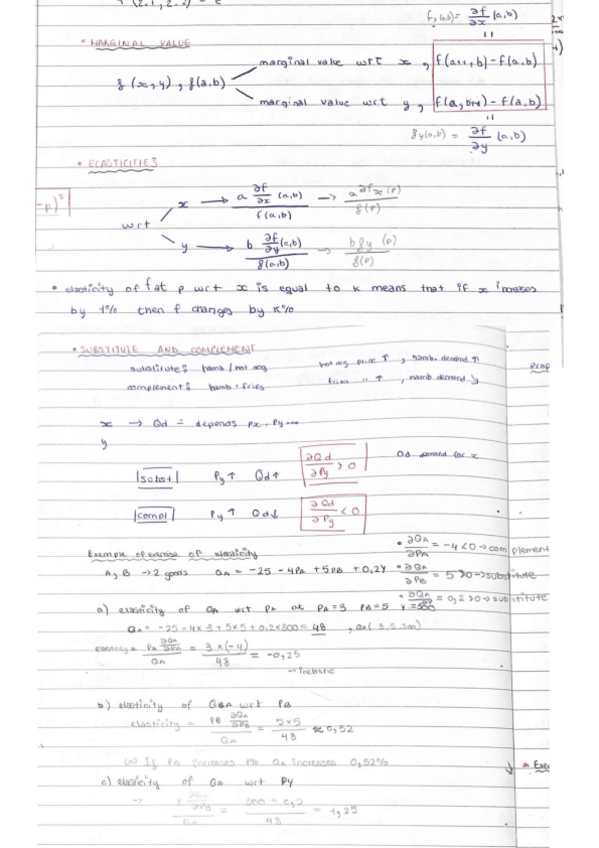 f_x(a,b) = ∂f/∂x (a,b)
• MARGINAL VALUE
marginal value wrt x, f(a+1,b) - f(a,b)
f(x,y), f(a,b)
marginal value wrt y, f(a,b+1) - f(a,b)
fy(a,b) = ∂f/∂y (a,b)
• ELASTICITIES
-p)²
x → a ∂f/∂x (a,b) / f(a,b) → a ∂fx(p) / f(p)
wrt
y → b ∂f/∂y (a,b) / f(a,b) → b fy (p) / f(p)
• elasticity of f at p wrt x is equal to k means that if x increases
by 1% then f changes by k%
• SUBSTITUTE AND COMPLEMENT
substitute: hamb / hot dog hot dog price ↑, hamb. demand ↑
complement: hamb + fries fries " ↑, hamb demand ↓
x → Qd = depends px, Py...
y
|subst| Py↑ Qd↑ ∂Qd/∂Py > 0 Qd demand for x
|compl| Py↑ Qd↓ ∂Qd/∂Py < 0
Exemple of exercise of elasticity
• ∂QA/∂PA = -4 < 0 → complement
A, B → 2 goods QA = -25 - 4PA + 5PB + 0,2Y
• ∂QA/∂PB = 5 > 0 → substitute
• = 0,2 > 0 → substitute
a) elasticity of QA wrt PA at PA=3 PB=5 Y=300
QA = -25 - 4×3 + 5×5 + 0,2×300 = 48, QA(3,5,300)
elasticity = PA ∂QA/∂PA / QA = 3×(-4) / 48 = -0,25
→ inelastic
b) elasticity of QA wrt PB
elasticity = PB ∂QA/∂PB / QA = 5×5 / 48 ≈ 0,52
(=) If PB increases 1% QA increases 0,52%
c) elasticity of QA wrt PY
→ Y ∂QA/∂PB / QA = 300 × 0,2 / 48 = 1,25